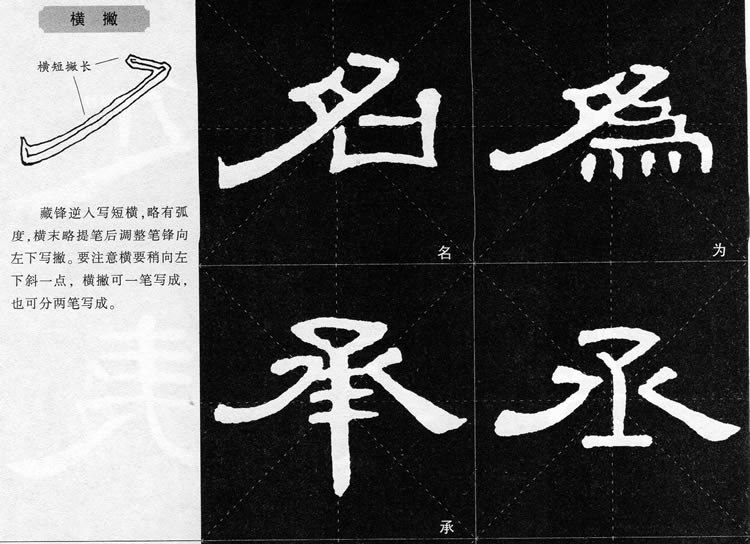 横撇
横短撇长
藏锋逆入写短横,略有弧
度,横末略提笔后调整笔锋向
左下写撇。要注意横要稍向左
下斜一点，横撇可一笔写成,
也可分两笔写成。
名 為
名 为
承 丞
承